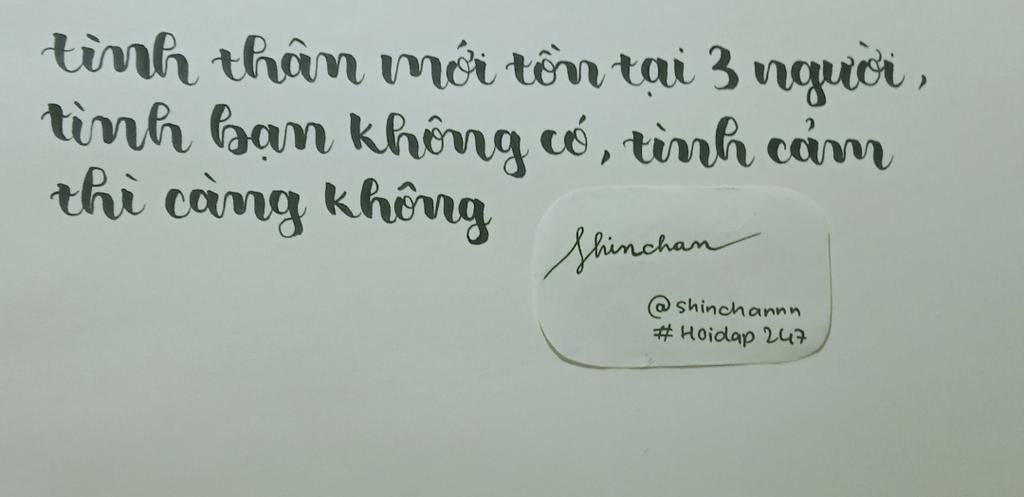 tình thân mới tồn tại 3 người,
tình bạn không có, tình cảm
thì càng không
Shinchan
@shinchannn
# Hoidap 247